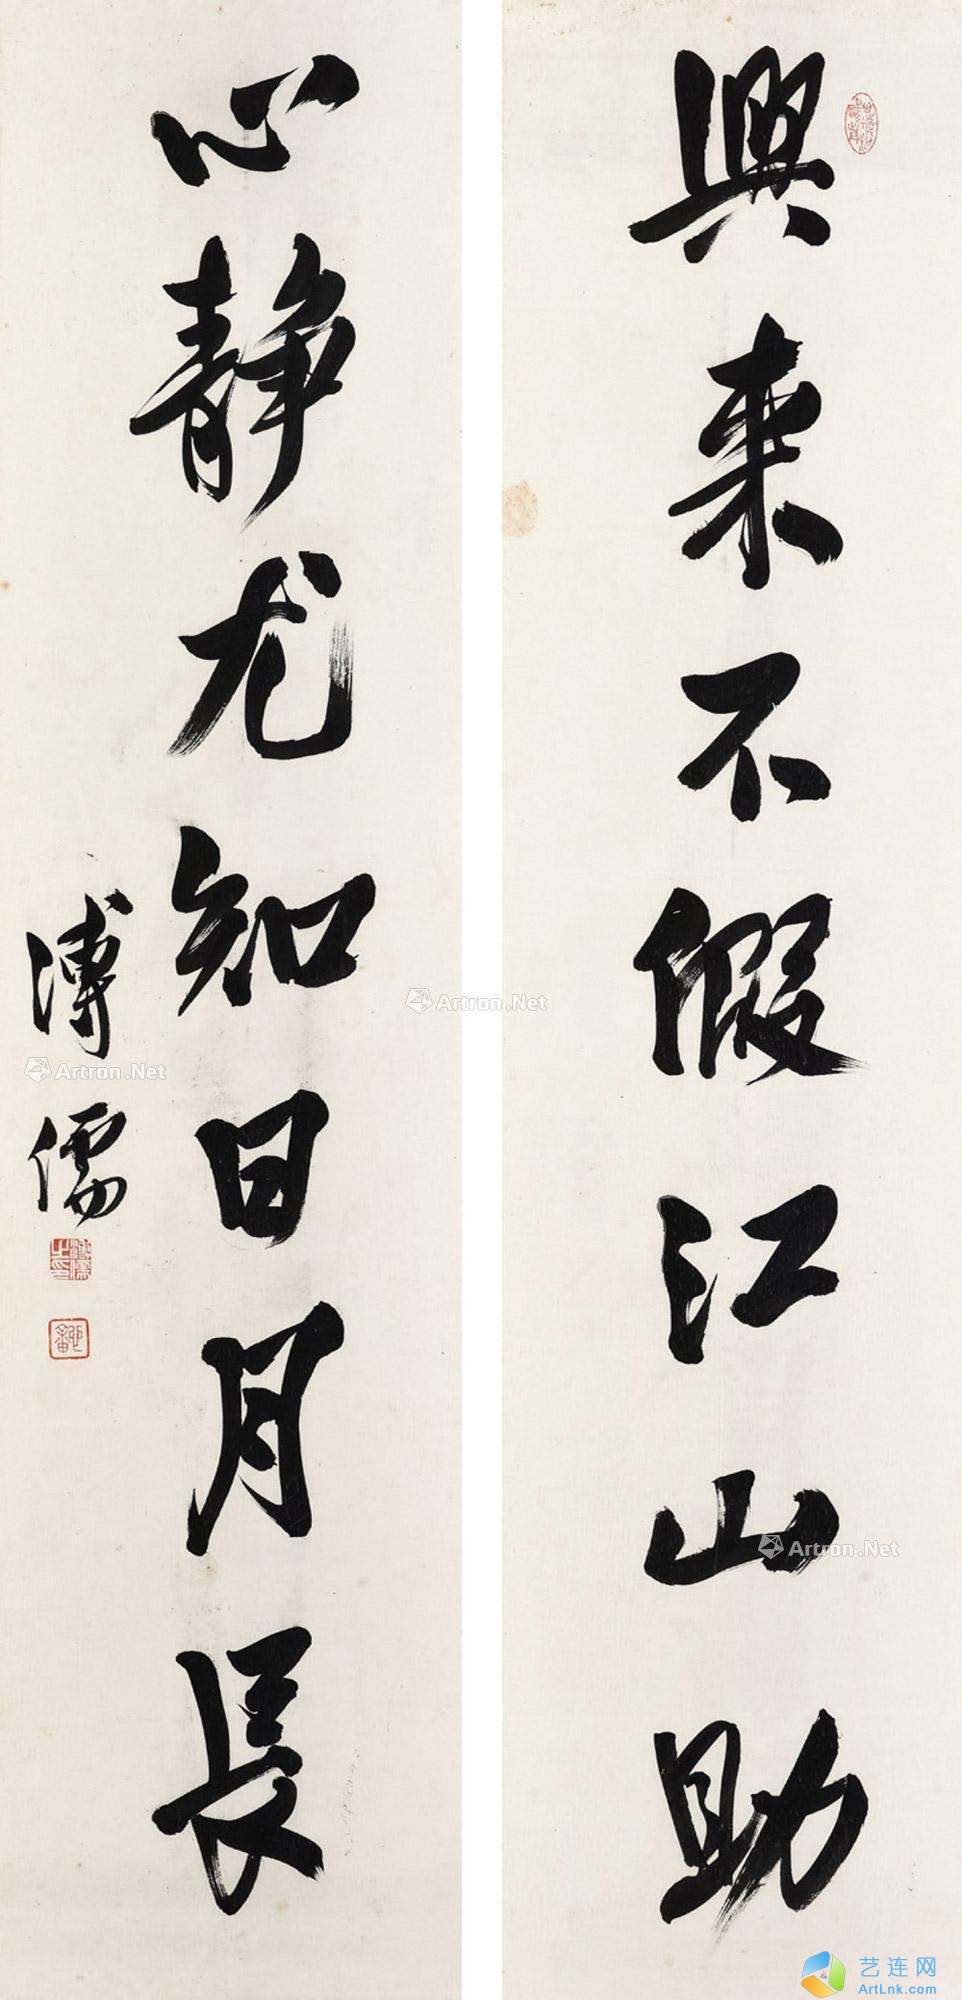 興来不假江山助
心静尤知日月長
溥儒
溥儒之印
Artron.Net
Artron.Net
Artron.Net
艺连网
ArtLnk.com